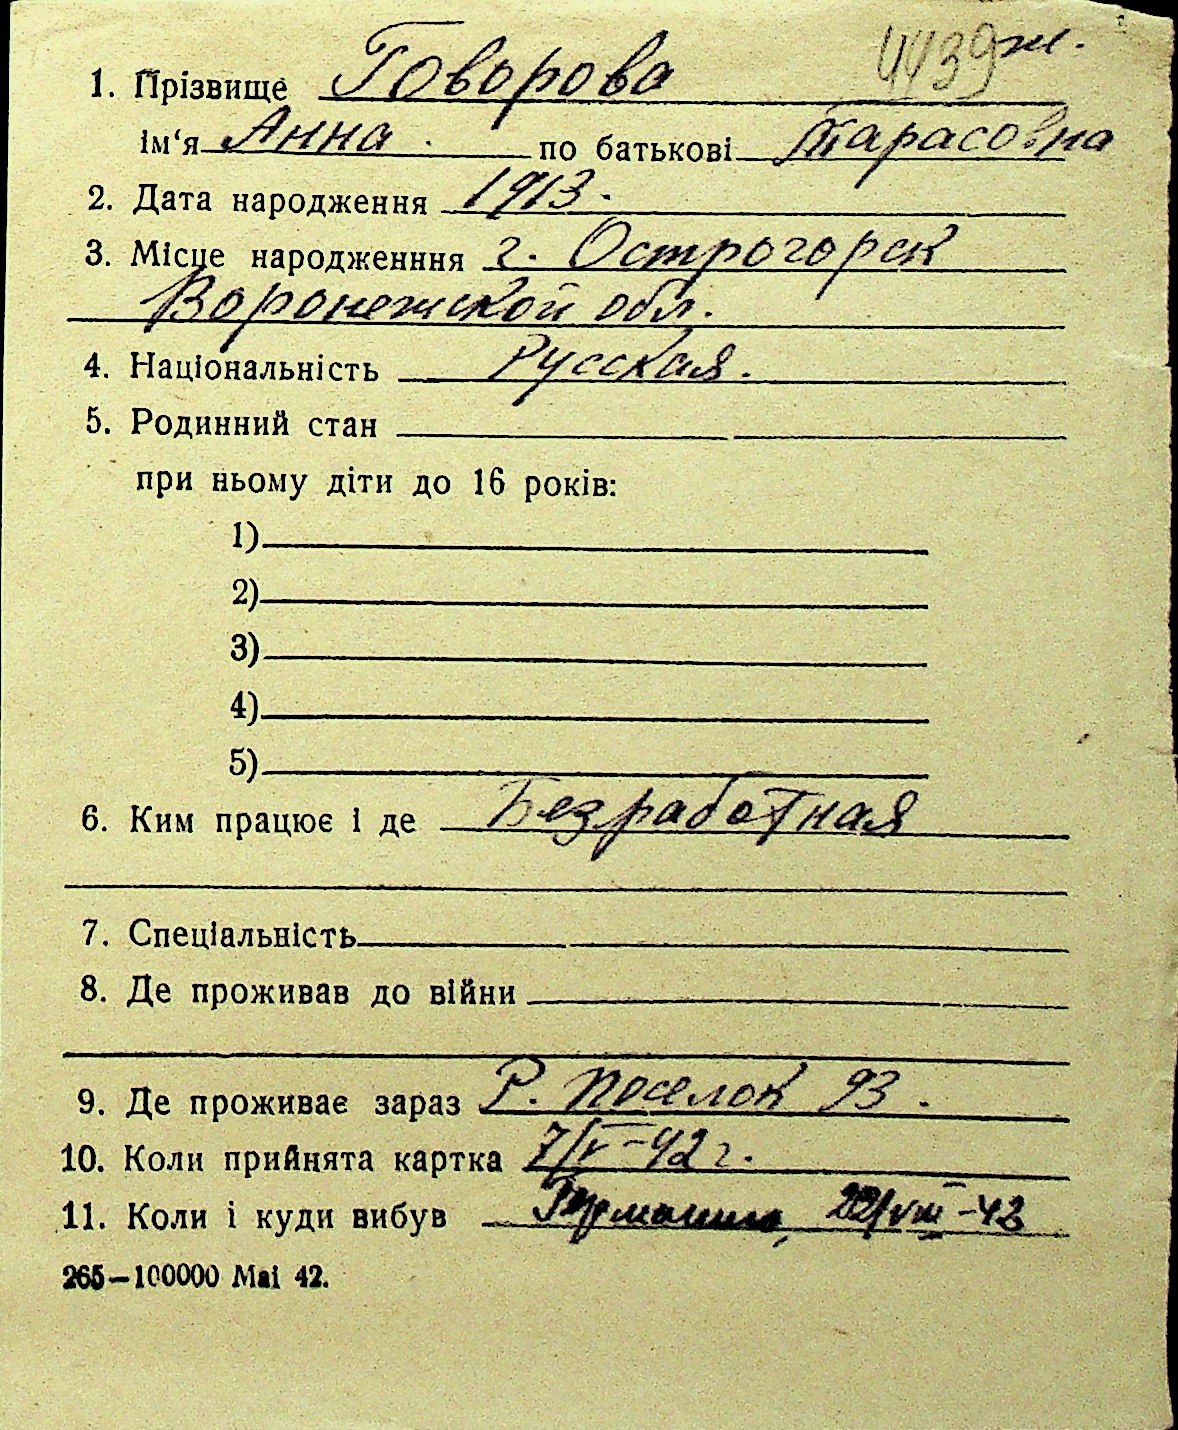 4439 ж.
1. Прізвище Говорова
ім‘я Анна. по батькові Тарасовна
2. Дата народження 1913.
3. Місце народженння г. Острогорск
Воронежской обл.
4. Національність Русская.
5. Родинний стан
при ньому діти до 16 років:
1)
2)
3)
4)
5)
6. Ким працює і де Безработная
7. Спеціальність
8. Де проживав до війни
9. Де проживає зараз Р. поселок 93.
10. Коли прийнята картка 7/V-42 г.
11. Коли і куди вибув Германию, 22/VIII-42
265—100000 Маі 42.